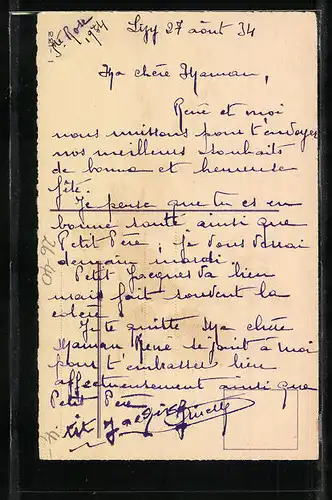 Ste Rose
1934
Lizy 27 août 34
Ma chère Maman,
René et moi
nous unissons pour t'envoyer
nos meilleurs souhaits
de bonne et heureuse
fête.
Je pense que tu es en
bonne santé ainsi que
Petit Père, je vous verrai
demain mardi.
Petit Jacques va bien
mais fait souvent la
colère
Je te quitte Ma chère
Maman René se joint à moi
pour t'embrasser bien
affectueusement ainsi que
Petit Père
tit